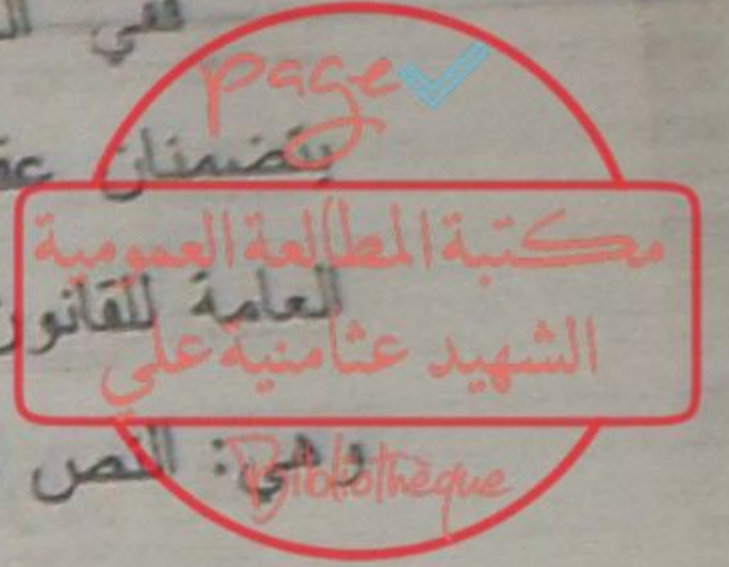 ففي
page
يتضمنان
مكتبة المطالعة العمومية
العامة للقانون
الشهيد عثامنية علي
وهي: النص
Bibliothèque